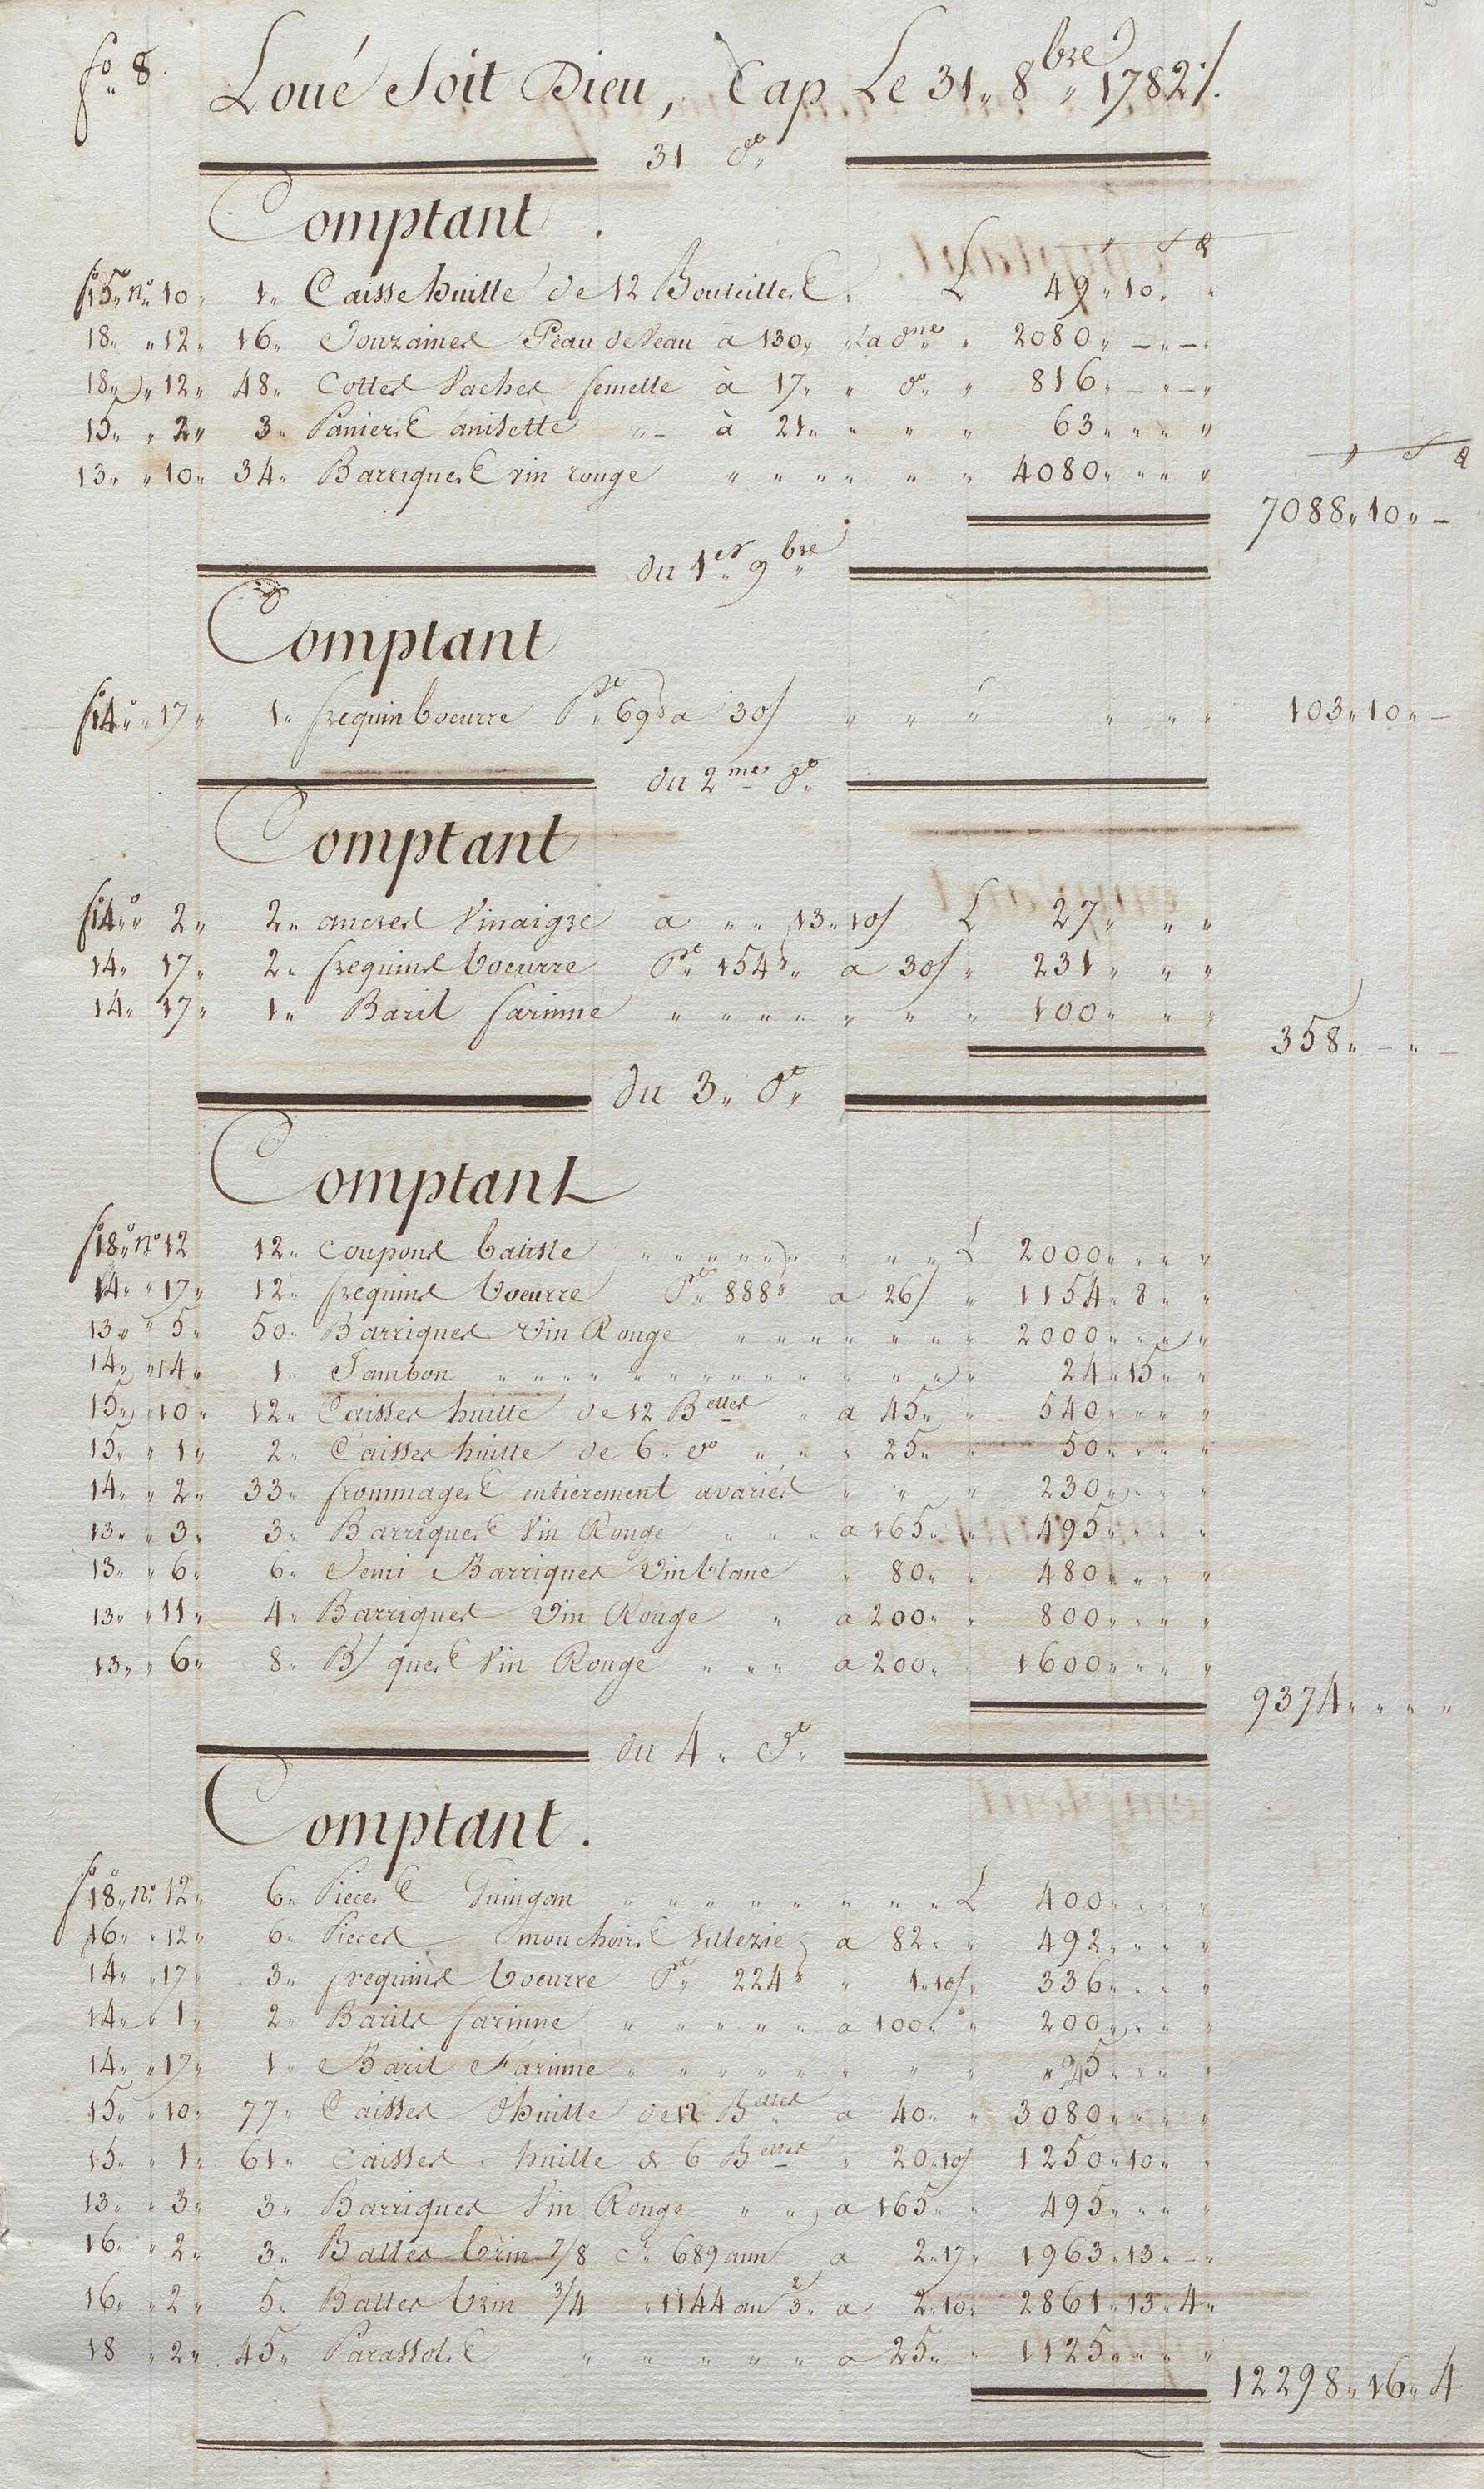 fo 8. Loué Soit Dieu, Cap Le 31 8bre 1782 /.
31 do
Comptant.
fo 15 no 10 1 Caisse huille de 12 Bouteilles L 49 10
18 12 16 Douzaines Peau de Veau à 130 La dne 2080 — —
18 12 48 Cottes Vaches semelle à 17 do 816 — —
15 2 3 Paniers anisette à 21 63
13 10 34 Barriques vin rouge 4080
7088 10 —
du 1er 9bre
Comptant
fo 14 17 1 frequin beurre Pt 69 a 30/ 103 10 —
du 2me do
Comptant
fo 14 2 2 ancres Vinaigre a 13 10/ L 27
14 17 2 frequins beurre Pt 154 a 30/ 231
14 17 1 Baril farinne 100
358 — —
du 3 do
Comptant
fo 18 no 12 12 coupons batiste L 2000
14 17 12 frequins beurre Pt 888 a 26/ 1154 8
13 5 50 Barriques Vin Rouge 2000
14 14 1 Jambon 24 15
15 10 12 Caisses huille de 12 Betles a 45 540
15 1 2 Caisses huille de 6 do 25 50
14 2 33 frommages entierement avariés 230
13 3 3 Barriques Vin Rouge a 165 495
13 6 6 Demi Barriques Vin blanc 80 480
13 11 4 Barriques Vin Rouge a 200 800
13 6 8 B/ques Vin Rouge a 200 1600
9374
du 4 do
Comptant.
fo 18 no 12 6 Pieces Guingan L 400
16 12 6 Pieces mouchoirs a 82 492
14 17 3 frequins beurre Pt 224 1 10/ 336
14 1 2 Barils farinne a 100 200
14 17 1 Baril Farinne 95
15 10 77 Caisses d'huille de 12 Betles a 40 3080
15 1 61 Caisses huille de 6 Betles 20 10/ 1250 10
13 3 3 Barriques Vin Rouge a 165 495
16 2 3 Balles brin 7/8 ct 689 aun a 2 17 1963 13 —
16 2 5 Balles brin 3/4 1144 au 2/3 a 2 10 2861 13 4
18 2 45 Parassols a 25 1125
12298 16 4